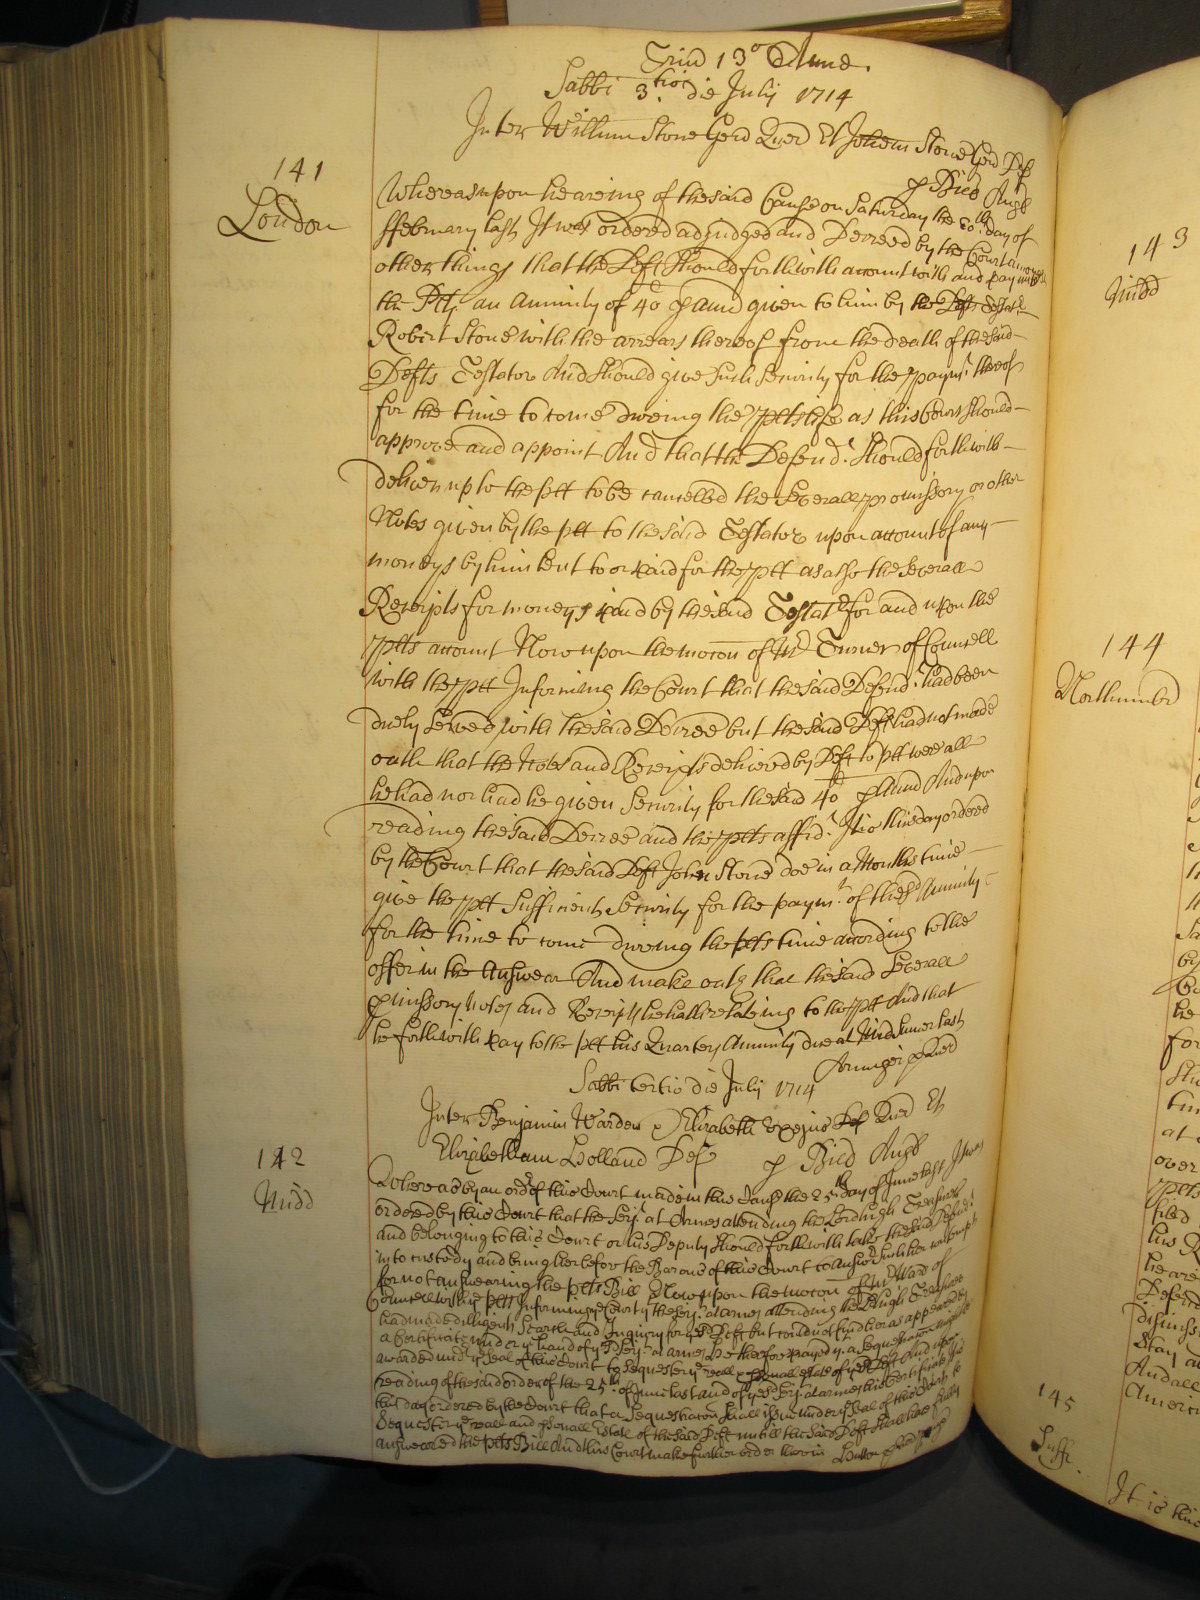 Trin 13o Annæ.
Sabbi 3tio die July 1714
Inter Willum Stone Gen Quer Et Johem Stone Gen Def
p Bill Angl
141
London
Whereas upon heareing of the said Cause on Saturday the 20th day of
ffebruary last It was ordered adjudged and Decreed by the Court amongst
other things that the Deft Should forthwith account with and pay unto
the Plt an Annuity of 40 p Annu given to him by the Defts Testatr
Robert Stone with the arrears thereof from the death of the said
Defts Testator And Should give Such Security for the paymt thereof
for the time to come dureing the plts life as this Court Should
approve and appoint And that the Defendt Should forthwith
deliver up to the plt to be cancelled the Severall promissory or other
Notes given by the plt to the said Testator upon account of any
moneys by him lent to or paid for the plt as also the Severall
Receipts for moneys paid by the said Testatr for and upon the
plts account Now upon the mocon of Mr Turner of Councell
with the plt Informing the Court that the said Defendt had been
duely Served with the said Decree but the said Deft had not made
oath that the Notes and Receipts delivered by Deft to plt were all
he had nor had he given Security for the said 40 p Annu And upon
reading the said Decree and the plts affidt It is this day ordered
by the Court that the said Deft John Stone doe in a Months time
give the plt Sufficient Security for the paymt of the sd Annuity
for the time to come dureing the plts time according to the
offer in the Answear And make oath that the said Severall
pmissory Notes and Receipts he hath relateing to the plt And that
he forthwith pay to the plt his Quarterly Annuity due at Midsumer last
Arminger p Quer
Sabbi tertio die July 1714
Inter Benjamin Warden Elizabeth Quer Et
Elizabetham Holland Def p Bill Angl
142
Midd
Whereas by an ordr of this Court made in this Cause the 25th day of June last It was
ordered by this Court that the Serjt at Armes attending the Lord high Treasurer
and belonging to this Court or his Deputy Should forthwith take the said Defendt
into custody and bring her before the Barons of this Court to answr Such her contempt
for not answearing the plts Bill Now upon the mocon of Mr Ward of
Councell with ye plts Informing ye Court yt the Serjt at armes attending the Ld high Treasurer
had made diligent Search and Inquiry for ye sd Deft but could not find her as appeared by
a Certificate under ye hand of ye sd Serjt at armes he therefore prayed yt a Sequestracon might be
awarded under ye Seal of this Court to Sequester ye reall & psonall estate of ye sd Deft And upon
reading of the said order of the 25th of June last and of ye sd Serjt at armes his Certificate It is
this day ordered by the Court that a Sequestracon Shall issue under ye Seal of this Court to
Sequester ye reall and psonall Estate of the said Deft untill the said Deft Shall have fully
answeared the plts Bill And this Court make further order therein
143
Midd
144
Northumbr
145
Suff.
It is this